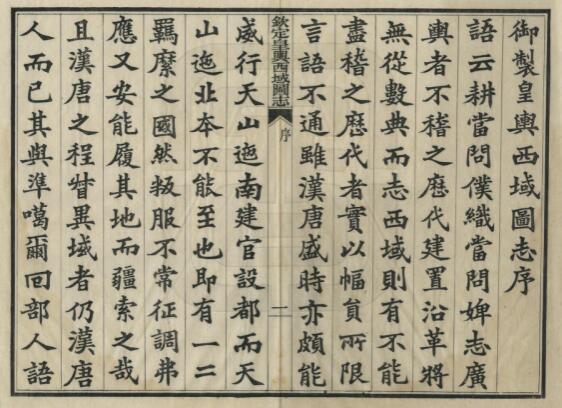 御製皇輿西域圖志序
語云耕當問僕織當問婢志廣
輿者不稽之厯代建置沿革將
無從數典而志西域則有不能
盡稽之厯代者實以幅員所限
言語不通雖漢唐盛時亦頗能
欽定皇輿西域圖志
序
二
威行天山迤南建官設都而天
山迤北本不能至也即有一二
羈縻之國然叛服不常征調弗
應又安能履其地而疆索之哉
且漢唐之程督異域者仍漢唐
人而已其與準噶爾回部人語